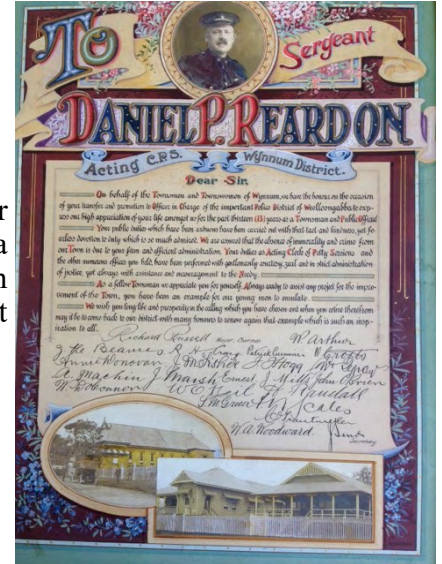 To
Sergeant
DANIEL P. REARDON
Acting C.P.S. Wynnum District.
Dear Sir.
On behalf of the Townsmen and Townswomen of Wynnum, we have the honour on the occasion
of your transfer and promotion to Officer in Charge of the important Police District of Woolloongabba to exp-
ress our high appreciation of your life amongst us for the past thirteen (13) years as a Townsman and Public Official
Your public duties which have been arduous have been carried out with that tact and kindness, yet fe-
arless devotion to duty which is so much admired. We are convinced that the absence of immorality and crime from
our Town is due to your firm and efficient administration. Your duties as Acting Clerk of Petty Sessions and
the other numerous offices you hold, have been performed with gentlemanly courtesy, zeal and in strict administration
of justice, yet always with assistance and encouragement to the Needy.
As a fellow Townsman we appreciate you for yourself. Always ready to assist any project for the impro-
vement of the Town, you have been an example for our young men to emulate.
We wish you long life and prosperity in the calling which you have chosen and when you retire therefrom
may it be to come back to our district with many honours to renew again that example which is such an insp-
iration to all.
Richard Russell Mayor, Chairman W. Arthur
Annie Donovan
A. Machin J. Marsh Ernest J. Mills John O'Brien
W. H. O'Connor W. C. Randall
Scales
W. A. Woodward
Secretary
r
a
n
t